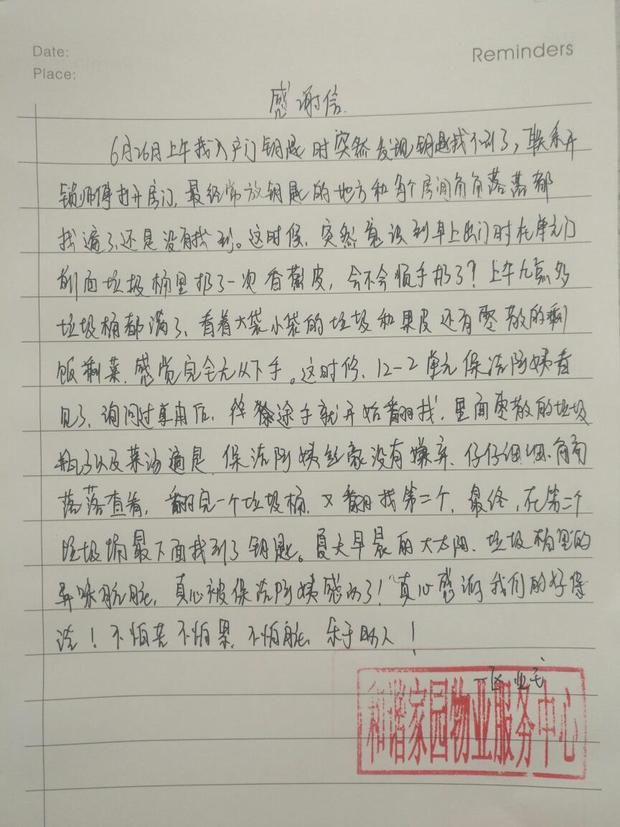 Date:
Reminders
Place:
感谢信
6月26日上午我入户门钥匙时突然发现钥匙找不到了,联系开
锁师傅打开房门,最经常放钥匙的地方和各个房间角角落落都
找遍了,还是没有找到。这时候,突然意识到早上出门时在单元门
前面垃圾桶里扔了一次香蕉皮,会不会顺手扔了?上午九点多
垃圾桶都满了,看着大袋小袋的垃圾和果皮还有零散的剩
饭剩菜,感觉完全无从下手。这时候,12-2单元保洁阿姨看
见了,询问过真相后,徒手就开始翻找,里面零散的垃圾
瓶子以及菜汤遍是,保洁阿姨丝毫没有嫌弃,仔仔细细,角角
落落查看,翻完一个垃圾桶,又翻找第二个,最终,在第二个
垃圾桶最下面找到了钥匙。夏天早晨的大太阳,垃圾桶里的
异味肮脏,真心被保洁阿姨感动了!真心感谢我们的好保
洁!不怕苦不怕累,不怕脏,乐于助人!
业主
和谐家园物业服务中心